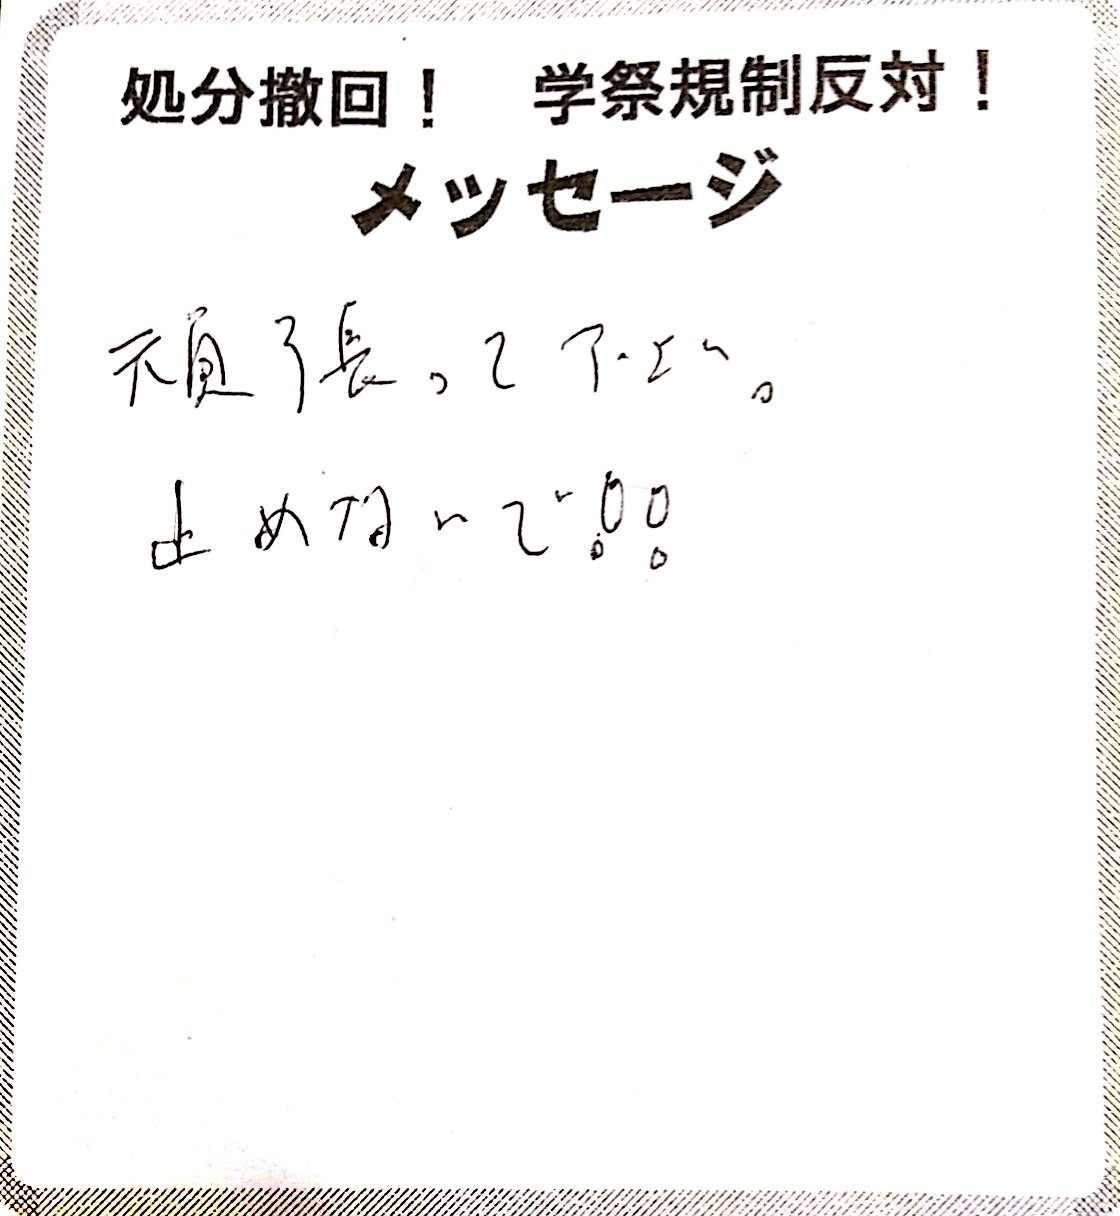 処分撤回！　学祭規制反対！
メッセージ
頑張って下さい。
止めないで!!